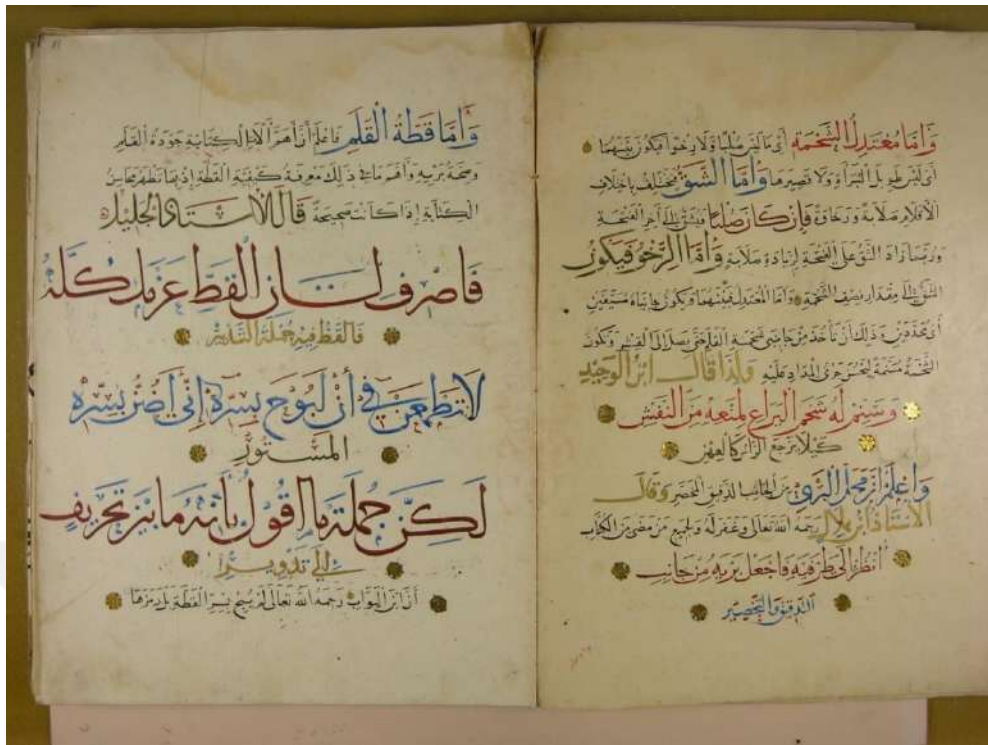 وَأَمَّا مُعْتَدِلُ الشَّحْمَةِ أَيْ مَا لَيْسَ صُلْبًا وَلَا رِخْوًا فَيَكُونُ بَيْنَهُمَا
أَيْ لَيْسَ طَوِيلَ الْبَرْأَةِ وَلَا قَصِيرَهَا وَأَمَّا الشَّقُّ فَيَخْتَلِفُ بِاخْتِلَافِ
الْأَقْلَامِ صَلَابَةً وَرَخَاوَةً فَإِنْ كَانَ صُلْبًا فَيُشَقُّ إِلَى آخِرِ الْفَتْحَةِ
وَرُبَّمَا زَادَ الشَّقُّ عَلَى الْفَتْحَةِ لِزِيَادَةِ صَلَابَةٍ وَأَمَّا الرِّخْوُ فَيَكُونُ
الشَّقُّ إِلَى مِقْدَارِ نِصْفِ الْفَتْحَةِ وَأَمَّا الْمُعْتَدِلُ فَبَيْنَهُمَا وَيَكُونُ جَانِبَاهُ مُسَيَّفَيْنِ
أَيْ مُحَدَّدَيْنِ وَذَلِكَ أَنْ تَأْخُذَ مِنْ جَانِبَيْ شَحْمَةِ الْقَلَمِ حَتَّى يَصِلَ إِلَى الْقِشْرِ وَتَكُونَ
الشَّحْمَةُ مُسَنَّمَةً لِيَحْسُنَ جَرْيُ الْمِدَادِ عَلَيْهِ وَلِذَا قَالَ ابْنُ الْوَحِيدِ
وَسَنِّمْ لَهُ شَحْمَ الْيَرَاعِ لِمَنْعِهِ مِنَ النَّفْشِ
كَيْلَا يَرْجِعَ الزَّائِرُ كَالْعِهْنِ
وَاعْلَمْ أَنَّ مَحَلَّ الْبَرْيِ مِنَ الْجَانِبِ الدَّقِيقِ الْمُخَصَّرِ وَقَالَ
الْأُسْتَاذُ ابْنُ هِلَالٍ رَحِمَهُ اللَّهُ تَعَالَى وَغَفَرَ لَهُ وَلِجَمِيعِ مَنْ مَضَى مِنَ الْكُتَّابِ
أُنْظُرْ إِلَى طَرَفَيْهِ فَاجْعَلْ بَرْيَهُ مِنْ جَانِبِ
التَّدْقِيقِ وَالتَّخْصِيرِ
وَأَمَّا قَطَّةُ الْقَلَمِ فَاعْلَمْ أَنَّ أَهَمَّ آلَاتِ الْكِتَابَةِ جَوْدَةُ الْقَلَمِ
وَصِحَّةُ بَرْيِهِ وَأَهَمُّ مَا فِي ذَلِكَ مَعْرِفَةُ كَيْفِيَّةِ الْقَطَّةِ إِذْ بِهَا تَظْهَرُ مَحَاسِنُ
الْكِتَابَةِ إِذَا كَانَتْ صَحِيحَةً قَالَ الْأُسْتَاذُ الْجَلِيلُ
فَاصْرِفْ لِشَأْنِ الْقَطِّ عَزْمَكَ كُلَّهُ
فَالْقَطُّ فِيهِ جُمْلَةُ التَّدْبِيرِ
لَا تَطْمَعَنْ فِي أَنْ أَبُوحَ بِسِرِّهِ إِنِّي أَضُنُّ بِسِرِّهِ
الْمَسْتُورِ
لَكِنَّ جُمْلَةَ مَا أَقُولُ بِأَنَّهُ مَا بَيْنَ تَحْرِيفٍ
إِلَى تَدْوِيرٍ
أَنَّ ابْنَ الْبَوَّابِ رَحِمَهُ اللَّهُ تَعَالَى لَمْ يُبِحْ بِسِرِّ الْقَطَّةِ بَلْ رَمَزَهَا